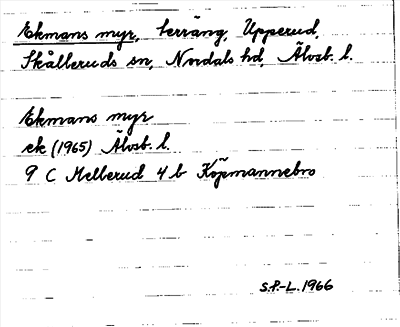 Ekmans myr, terräng, Upperud,
Skålleruds sn, Nordals hd, Älvsb. l.
Ekmans myr
ek (1965) Älvsb. l.
9 C Mellerud 4 b Köpmannebro
S.P.-L. 1966